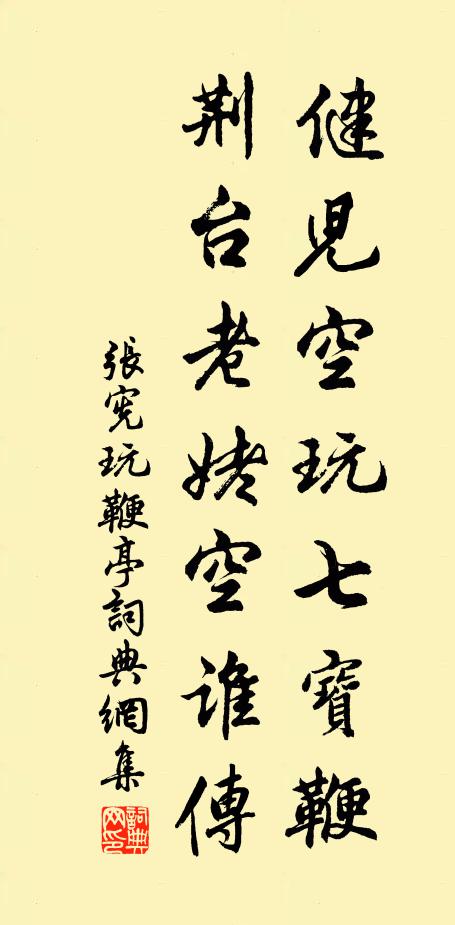 健児空玩七寶鞭
荆台老姥空誰傳
張憲玩鞭亭詞典網集
詞典网印